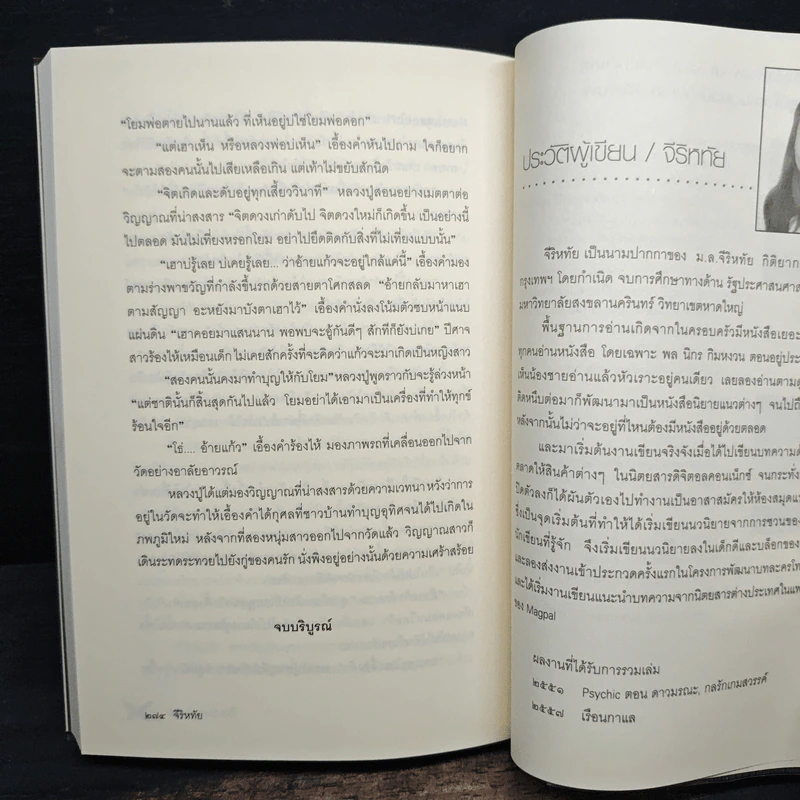 “โยมพ่อตายไปนานแล้ว ที่เห็นอยู่บ่ใช่โยมพ่อดอก”
“แต่เฮาเห็น หรือหลวงพ่อบ่เห็น” เอื้องคำหันไปถาม ใจก็อยาก
จะตามสองคนนั้นไปเสียเหลือเกิน แต่เท้าไม่ขยับสักนิด
“จิตเกิดและดับอยู่ทุกเสี้ยววินาที” หลวงปู่สอนอย่างเมตตาต่อ
วิญญาณที่น่าสงสาร “จิตดวงเก่าดับไป จิตดวงใหม่ก็เกิดขึ้น เป็นอย่างนี้
ไปตลอด มันไม่เที่ยงหรอกโยม อย่าไปยึดติดกับสิ่งที่ไม่เที่ยงแบบนั้น”
“เฮาบ่ฮู้เลย บ่เคยฮู้เลย... ว่าอ้ายแก้วจะอยู่ใกล้แค่นี้” เอื้องคำมอง
ตามร่างพาขวัญที่กำลังขึ้นรถด้วยสายตาโศกสลด “อ้ายกลับมาหาเฮา
ตามสัญญา อะหยังมาบังตาเฮาไว้” เอื้องคำนั่งลงโน้มตัวซบหน้าแนบ
แผ่นดิน “เฮาคอยมาแสนนาน พอพบจะอู้กันดีๆ สักทีก็ยังบ่เกย” ปีศาจ
สาวร้องไห้เหมือนเด็ก ไม่เคยสักครั้งที่จะคิดว่าแก้วจะมาเกิดเป็นหญิงสาว
“สองคนนั้นคงมาทำบุญให้กับโยม” หลวงปู่พูดราวกับจะรู้ล่วงหน้า
“แต่ชาตินั้นก็สิ้นสุดกันไปแล้ว โยมอย่าได้เอามาเป็นเครื่องที่ทำให้ทุกข์
ร้อนใจอีก”
“โธ่.... อ้ายแก้ว” เอื้องคำร้องไห้ มองภาพรถที่เคลื่อนออกไปจาก
วัดอย่างอาลัยอาวรณ์
หลวงปู่ได้แต่มองวิญญาณที่น่าสงสารด้วยความเวทนา หวังว่าการ
อยู่ในวัดจะทำให้เอื้องคำได้กุศลที่ชาวบ้านทำบุญอุทิศจนได้ไปเกิดใน
ภพภูมิใหม่ หลังจากที่สองหนุ่มสาวออกไปจากวัดแล้ว วิญญาณสาวก็
เดินระทดระทวยไปยังกู่ของคนรัก นั่งพิงอยู่อย่างนั้นด้วยความเศร้าสร้อย
จบบริบูรณ์
๒๗๔ จีริหทัย
ประวัติผู้เขียน / จีริหทัย
จีริหทัย เป็นนามปากกาของ ม.ล.จีริหทัย กิติยาก
กรุงเทพฯ โดยกำเนิด จบการศึกษาทางด้าน รัฐประศาสนศา
มหาวิทยาลัยสงขลานครินทร์ วิทยาเขตหาดใหญ่
พื้นฐานการอ่านเกิดจากในครอบครัวมีหนังสือเยอะ
ทุกคนอ่านหนังสือ โดยเฉพาะ พล นิกร กิมหงวน ตอนอยู่ประ
เห็นน้องชายอ่านแล้วหัวเราะอยู่คนเดียว เลยลองอ่านตามดู
ติดหนึบต่อมาก็พัฒนามาเป็นหนังสือนิยายแนวต่างๆ จนไปถึ
หลังจากนั้นไม่ว่าจะอยู่ที่ไหนต้องมีหนังสืออยู่ด้วยตลอด
และมาเริ่มต้นงานเขียนจริงจังเมื่อได้ไปเขียนบทความด้
ตลาดให้สินค้าต่างๆ ในนิตยสารดิจิตอลคอนเน็กซ์ จนกระทั่ง
ปิดตัวลงก็ได้ผันตัวเองไปทำงานเป็นอาสาสมัครให้ห้องสมุดแห
ซึ่งเป็นจุดเริ่มต้นที่ทำให้ได้เริ่มเขียนนวนิยายจากการชวนของ
นักเขียนที่รู้จัก จึงเริ่มเขียนนวนิยายลงในเด็กดีและบล็อกของ
และลองส่งงานเข้าประกวดครั้งแรกในโครงการพัฒนาบทละครโท
และได้เริ่มงานเขียนแนะนำบทความจากนิตยสารต่างประเทศในแพ
ของ Magpal
ผลงานที่ได้รับการรวมเล่ม
๒๕๕๑ Psychic ตอน ดาวมรณะ, กลรักเกมสวรรค์
๒๕๕๗ เรือนกาแล